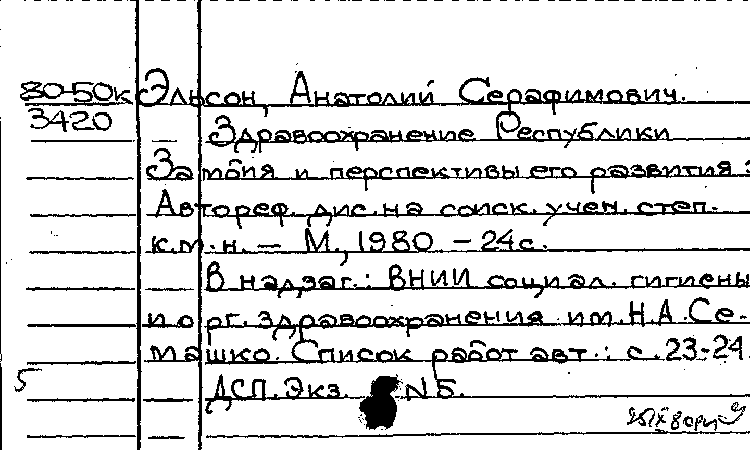 80-50к Эльсон, Анатолий Серафимович.
3420
Здравоохранение Республики
Замбия и перспективы его развития :
Автореф. дис. на соиск. учен. степ.
к.м.н. – М., 1980 – 24с.
В надзаг.: ВНИИ социал. гигиены
и орг. здравоохранения им. Н.А. Се-
машко. Список работ авт.: с. 23-24
5 ДСП. Экз. №5.